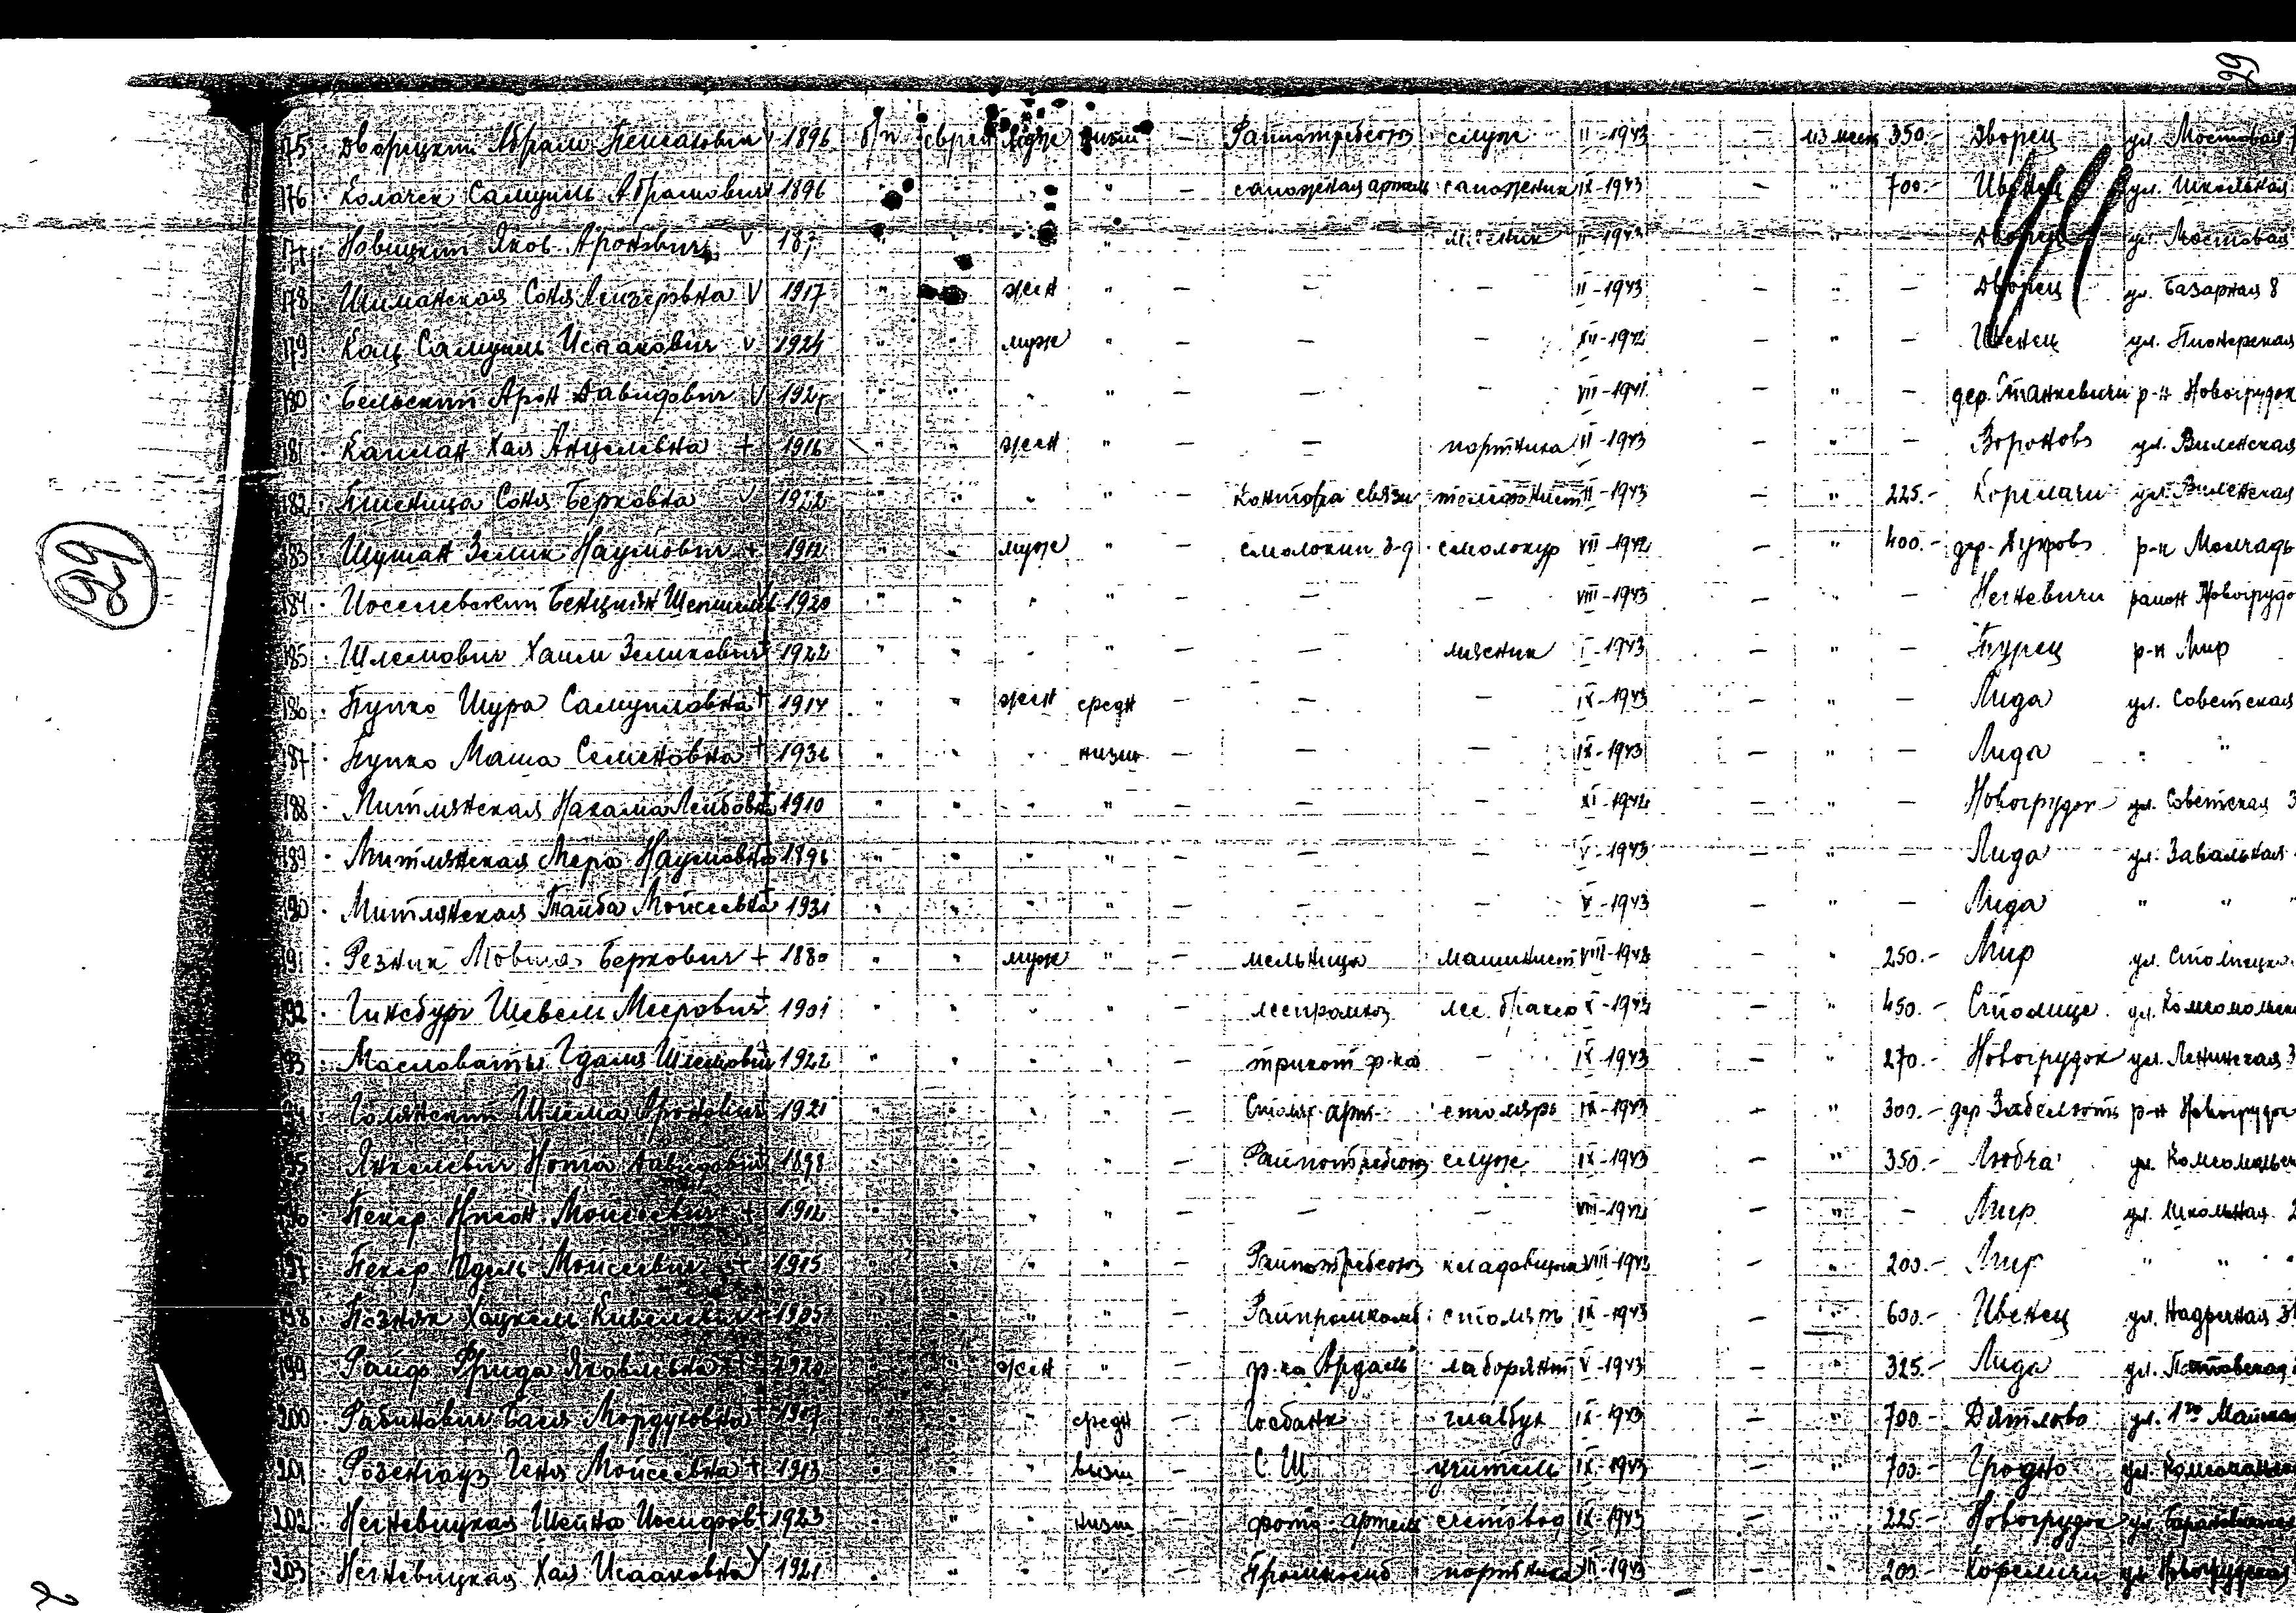 99
175. Дворецкий Абрам Пейсахович 1896 б/п еврей муж низш — Райпотребсоюз служ II-1943 — из мест 350.- Дворец ул. Мостовая
176. Колачек Самуиль Абрамович 1896 " " " " — сапожная артель сапожник IX-1943 — " 700.- Ивенец ул. Школьная
177. Новицкий Яков Аронович V " " " " — — мясник II-1943 — " — Дворец ул. Мостовая
178. Шиманская Соня Лейзеровна V 1917 " " жен " — — — II-1943 — " — Дворец ул. Базарная 8
179. Кац Самуиль Исаакович V 1924 " " муж " — — — XII-1942 — " — Ивенец ул. Пионерская
180. Бельский Арон Давидович V " " " " — — — VII-1941 — " — дер. Станкевичи р-н Новогрудок
181. Каплан Хая Анцелевна + 1916 " " жен " — — портниха II-1943 — " — Вороново ул. Виленская
182. Пшеница Соня Берковна V 1922 " " " " — контора связи телефонист II-1943 — " 225.- Кореличи ул. Виленская
183. Шуман Зелик Наумович + 1912 " " муж " — смолокип з-д смолокур VIII-1942 — " 400.- дер. р-н Молчадь
184. Иоселевский Бенциян V 1920 " " " " — — — VIII-1943 — " — Негневичи район Новогрудо
185. Шлемович Хаим Зеликович + 1922 " " " " — — мясник I-1943 — " — Турец р-н Мир
186. Пупко Шура Самуиловна + 1914 " " жен средн — — — IX-1943 — " — Лида ул. Советская
187. Пупко Маша Семеновна + 1936 " " " низш — — — IX-1943 — " — Лида " "
188. Митлянская Нахама Лейбовна + 1910 " " " " — — — XI-1942 — " — Новогрудок ул. Советская 3
189. Митлянская Мера Наумовна 1896 " " " " — — — V-1943 — " — Лида ул. Завальная
190. Митлянская Тайба Мойсеевна + 1931 " " " " — — — V-1943 — " — Лида " " "
191. Резник Мовша Беркович + 1880 " " муж " — мельница машинист VIII-1942 — " 250.- Мир ул. Столпецка
192. Гинсбург Шевель Меерович + 1901 " " " " — леспромхоз лес. бракер X-1942 — " 450.- Столпце ул. Комсомольск
193. Масловаты Гдаля Шлемович 1922 " " " " — трикот ф-ка — IX-1943 — " 270.- Новогрудок ул. Ленинская 3
194. Голянский Шлема Аронович 1921 " " " " — Столяр. арт. столярь IX-1943 — " 300.- дер. р-н Новогрудок
195. Янкелевич Нота Давидович 1898 " " " " — Райпотребсоюз служ IX-1943 — " 350.- Любча ул. Комсомольск
196. Пекер Нисон Мойсеевич + 1912 " " " " — — — VIII-1942 — " — Мир ул. Школьная 2
197. Пекер Идель Мойсеевич + 1915 " " " " — Райпотребсоюз кладовщик VIII-1942 — " 200.- Мир " " "
198. Позняк Хацкель Кивелевич + 1905 " " " " — Райпромкомб столяр IX-1943 — " 600.- Ивенец ул. Надречная
199. Райф Фрида Яковлевна + 1920 " " жен " — ф-ка Ардаль лаборант V-1943 — " 325.- Лида ул.
200. Рабинович Бася Мордуховна + 1907 " " " средн — Госбанк главбух IX-1943 — " 700.- Дятлово ул. 1го Майская
201. Розенгауз Геня Мойсеевна + 1913 " " " высш — С.Ш учитель IX-1943 — " 700.- Гродно ул.
202. Негневицкая Шейна Иосифов + 1923 " " " низш — фото артель счетовод IX-1943 — " 225.- Новогрудок ул.
203. Негневицкая Хая Исааковна V 1921 " " " " — Промкомб портниха XII-1943 — " 200.- Кореличи ул. Новогрудская